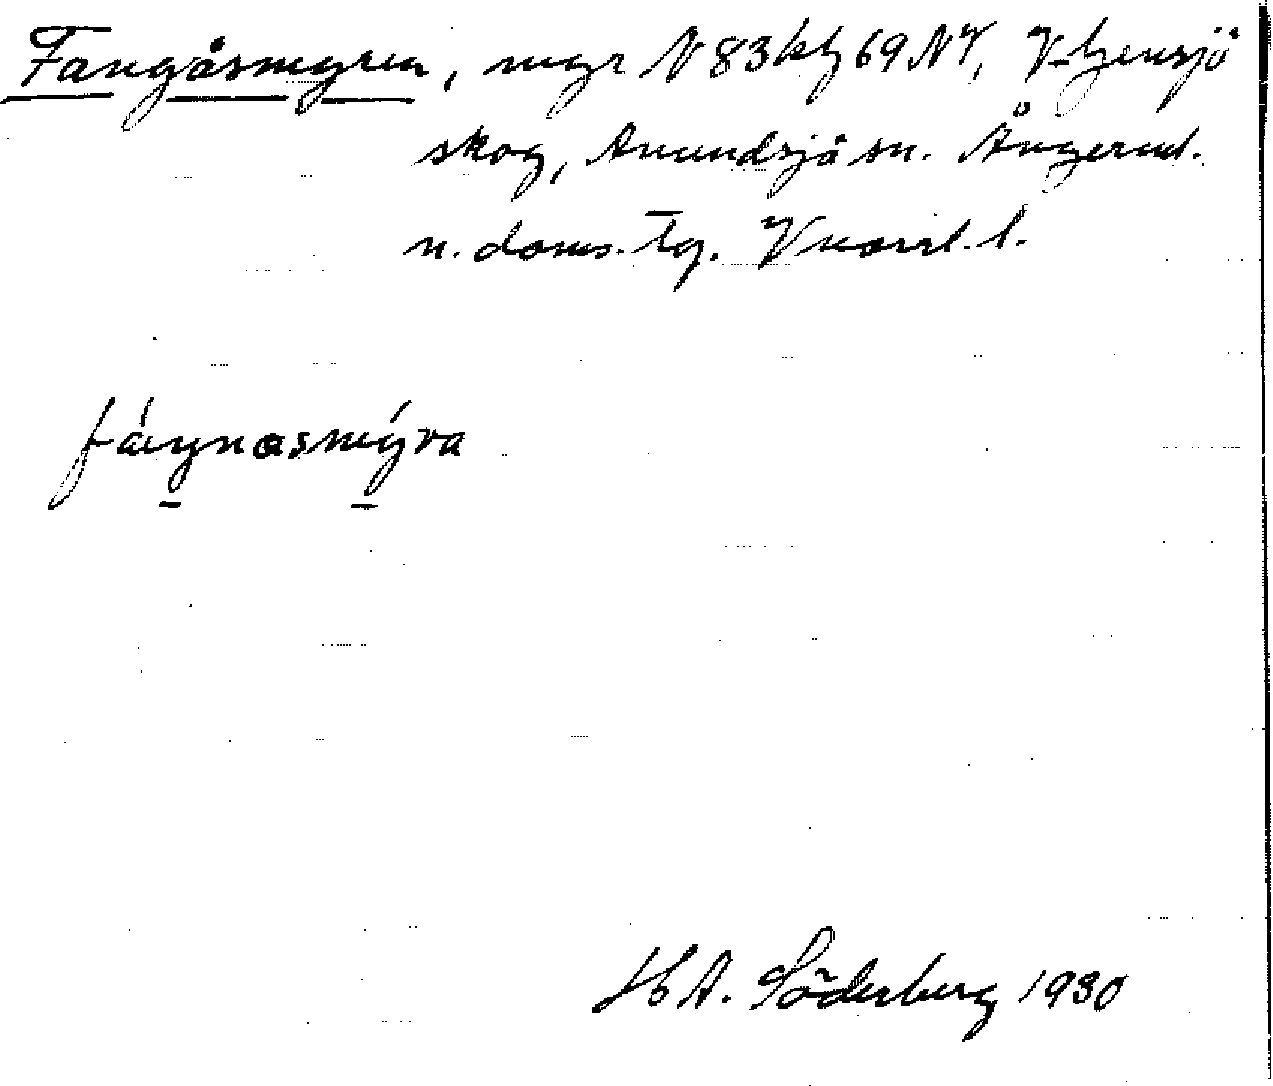 Fangåsmyren, myr N 83 kbl 69 NV, V-Gensjö
skog, Anundsjö sn. Ångerml.
n. doms. Tg. Vnorrl. l.
fáŋnasmýra
H A. Söderberg 1930